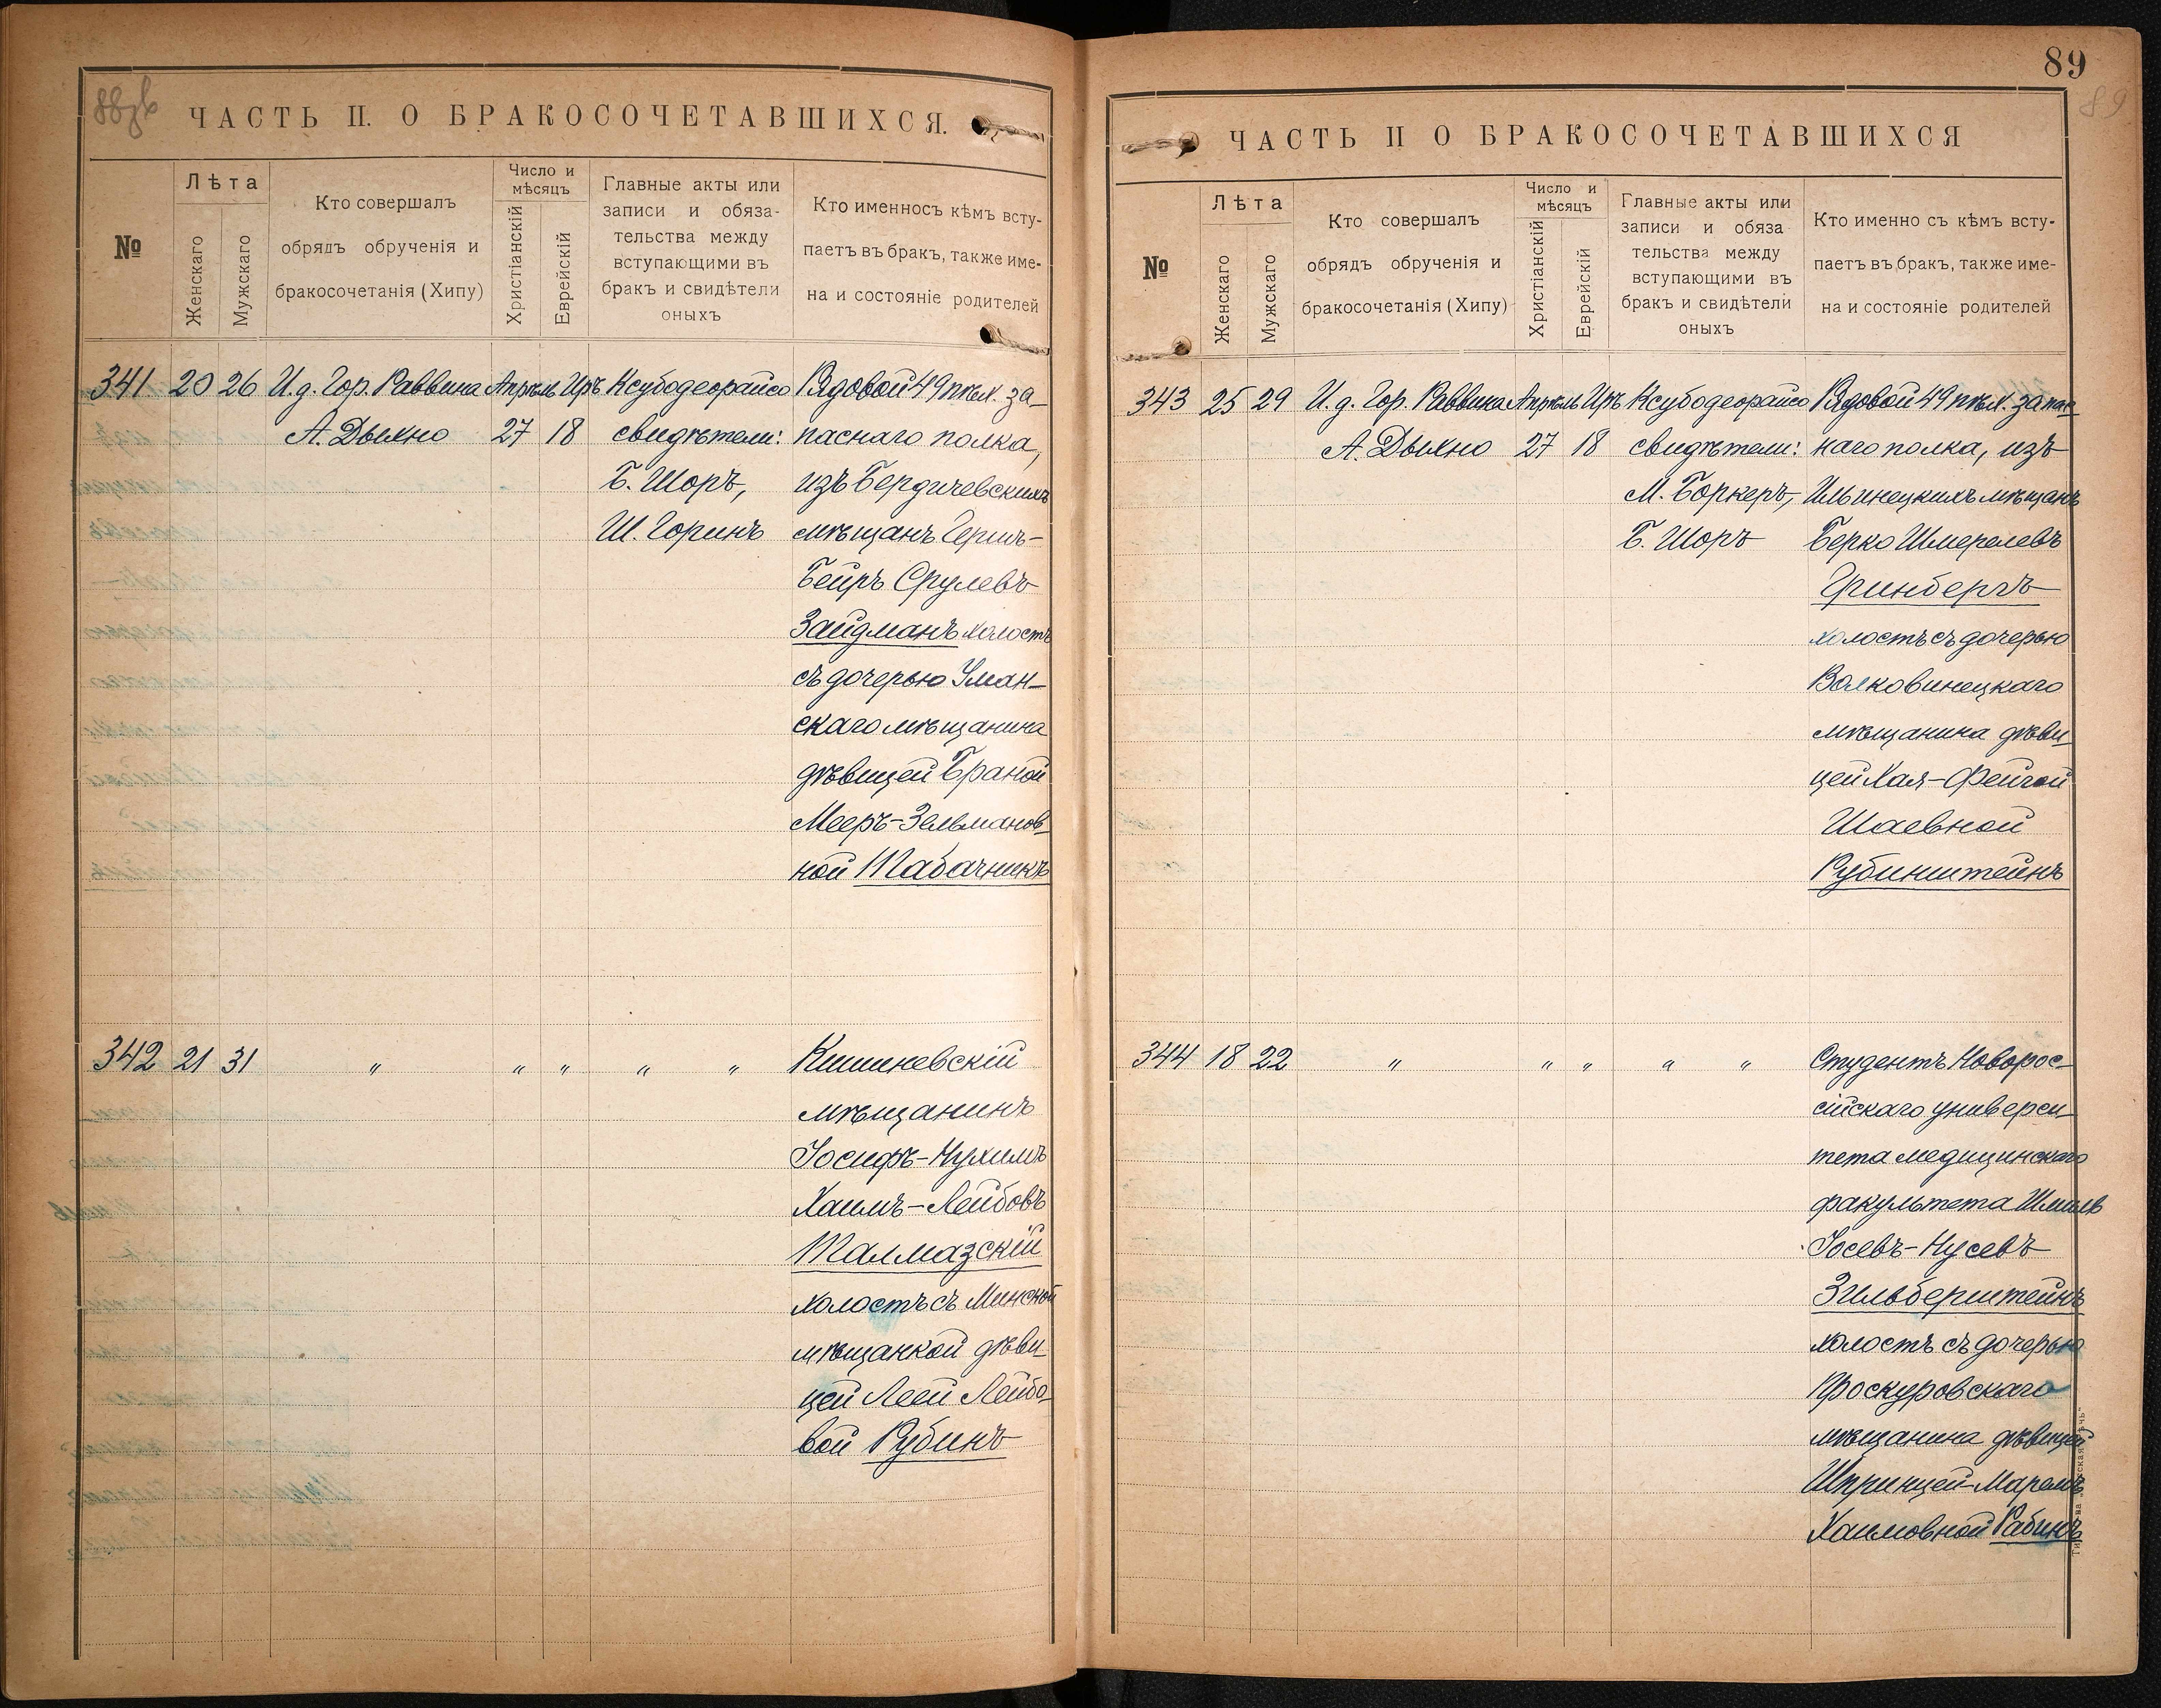 88зв
ЧАСТЬ II. О БРАКОСОЧЕТАВШИХСЯ.
№
Лѣта
Женскаго
Мужскаго
Кто совершалъ
обрядъ обрученія и
бракосочетанія (Хипу)
Число и
мѣсяцъ
Христіанскій
Еврейскій
Главные акты или
записи и обяза-
тельства между
вступающими въ
бракъ и свидѣтели
оныхъ
Кто именносъ кѣмъ всту-
паетъ въ бракъ, также име-
на и состояніе родителей
341 20 26 И.д. Гор. Раввина Апрѣль Иръ Ксубодеорайсо Рядовой 49 пѣх. за-
А. Дыхно 27 18 свидѣтели: паснаго полка,
Б. Шоръ, изъ Бердичевскихъ
Ш. Горинъ мѣщанъ Герш-
Бейръ Срулевъ
Зайдманъ холостъ
съ дочерью Уман-
скаго мѣщанина
дѣвицей Браной
Мееръ-Зельманов-
ной Табачникъ
342 21 31 " " " " " Кишиневскій
мѣщанинъ
Іосифъ-Нухимъ
Хаимъ-Лейбовъ
Талмазскій
холостъ съ Минской
мѣщанкой дѣви-
цей Леей Лейбо-
вой Рубинъ
89
89
ЧАСТЬ II О БРАКОСОЧЕТАВШИХСЯ
№
Лѣта
Женскаго
Мужскаго
Кто совершалъ
обрядъ обрученія и
бракосочетанія (Хипу)
Число и
мѣсяцъ
Христіанскій
Еврейскій
Главные акты или
записи и обяза
тельства между
вступающими въ
бракъ и свидѣтели
оныхъ
Кто именно съ кѣмъ всту-
паетъ въ бракъ, также име-
на и состояніе родителей
343 25 29 И.д. Гор. Раввина Апрѣль Иръ Ксубодеорайсо Рядовой 49 пѣх. запас-
А. Дыхно 27 18 свидѣтели: наго полка, изъ
М. Боркеръ, Ильинецкихъ мѣщанъ
Б. Шоръ Берко Шмерелевъ
Гринбергъ
холостъ съ дочерью
Волковинецкаго
мѣщанина дѣви-
цей Хая-Фейгой
Шаевной
Рубинштейнъ
344 18 22 " " " " " Студентъ Новорос-
сійскаго универси-
тета медицинскаго
факультета Шмиль
Іосевъ-Нусевъ
Зильберштейнъ
холостъ съ дочерью
Проскуровскаго
мѣщанина дѣвицей
Шпринцей-Марелъ
Хаимовной Рабинъ